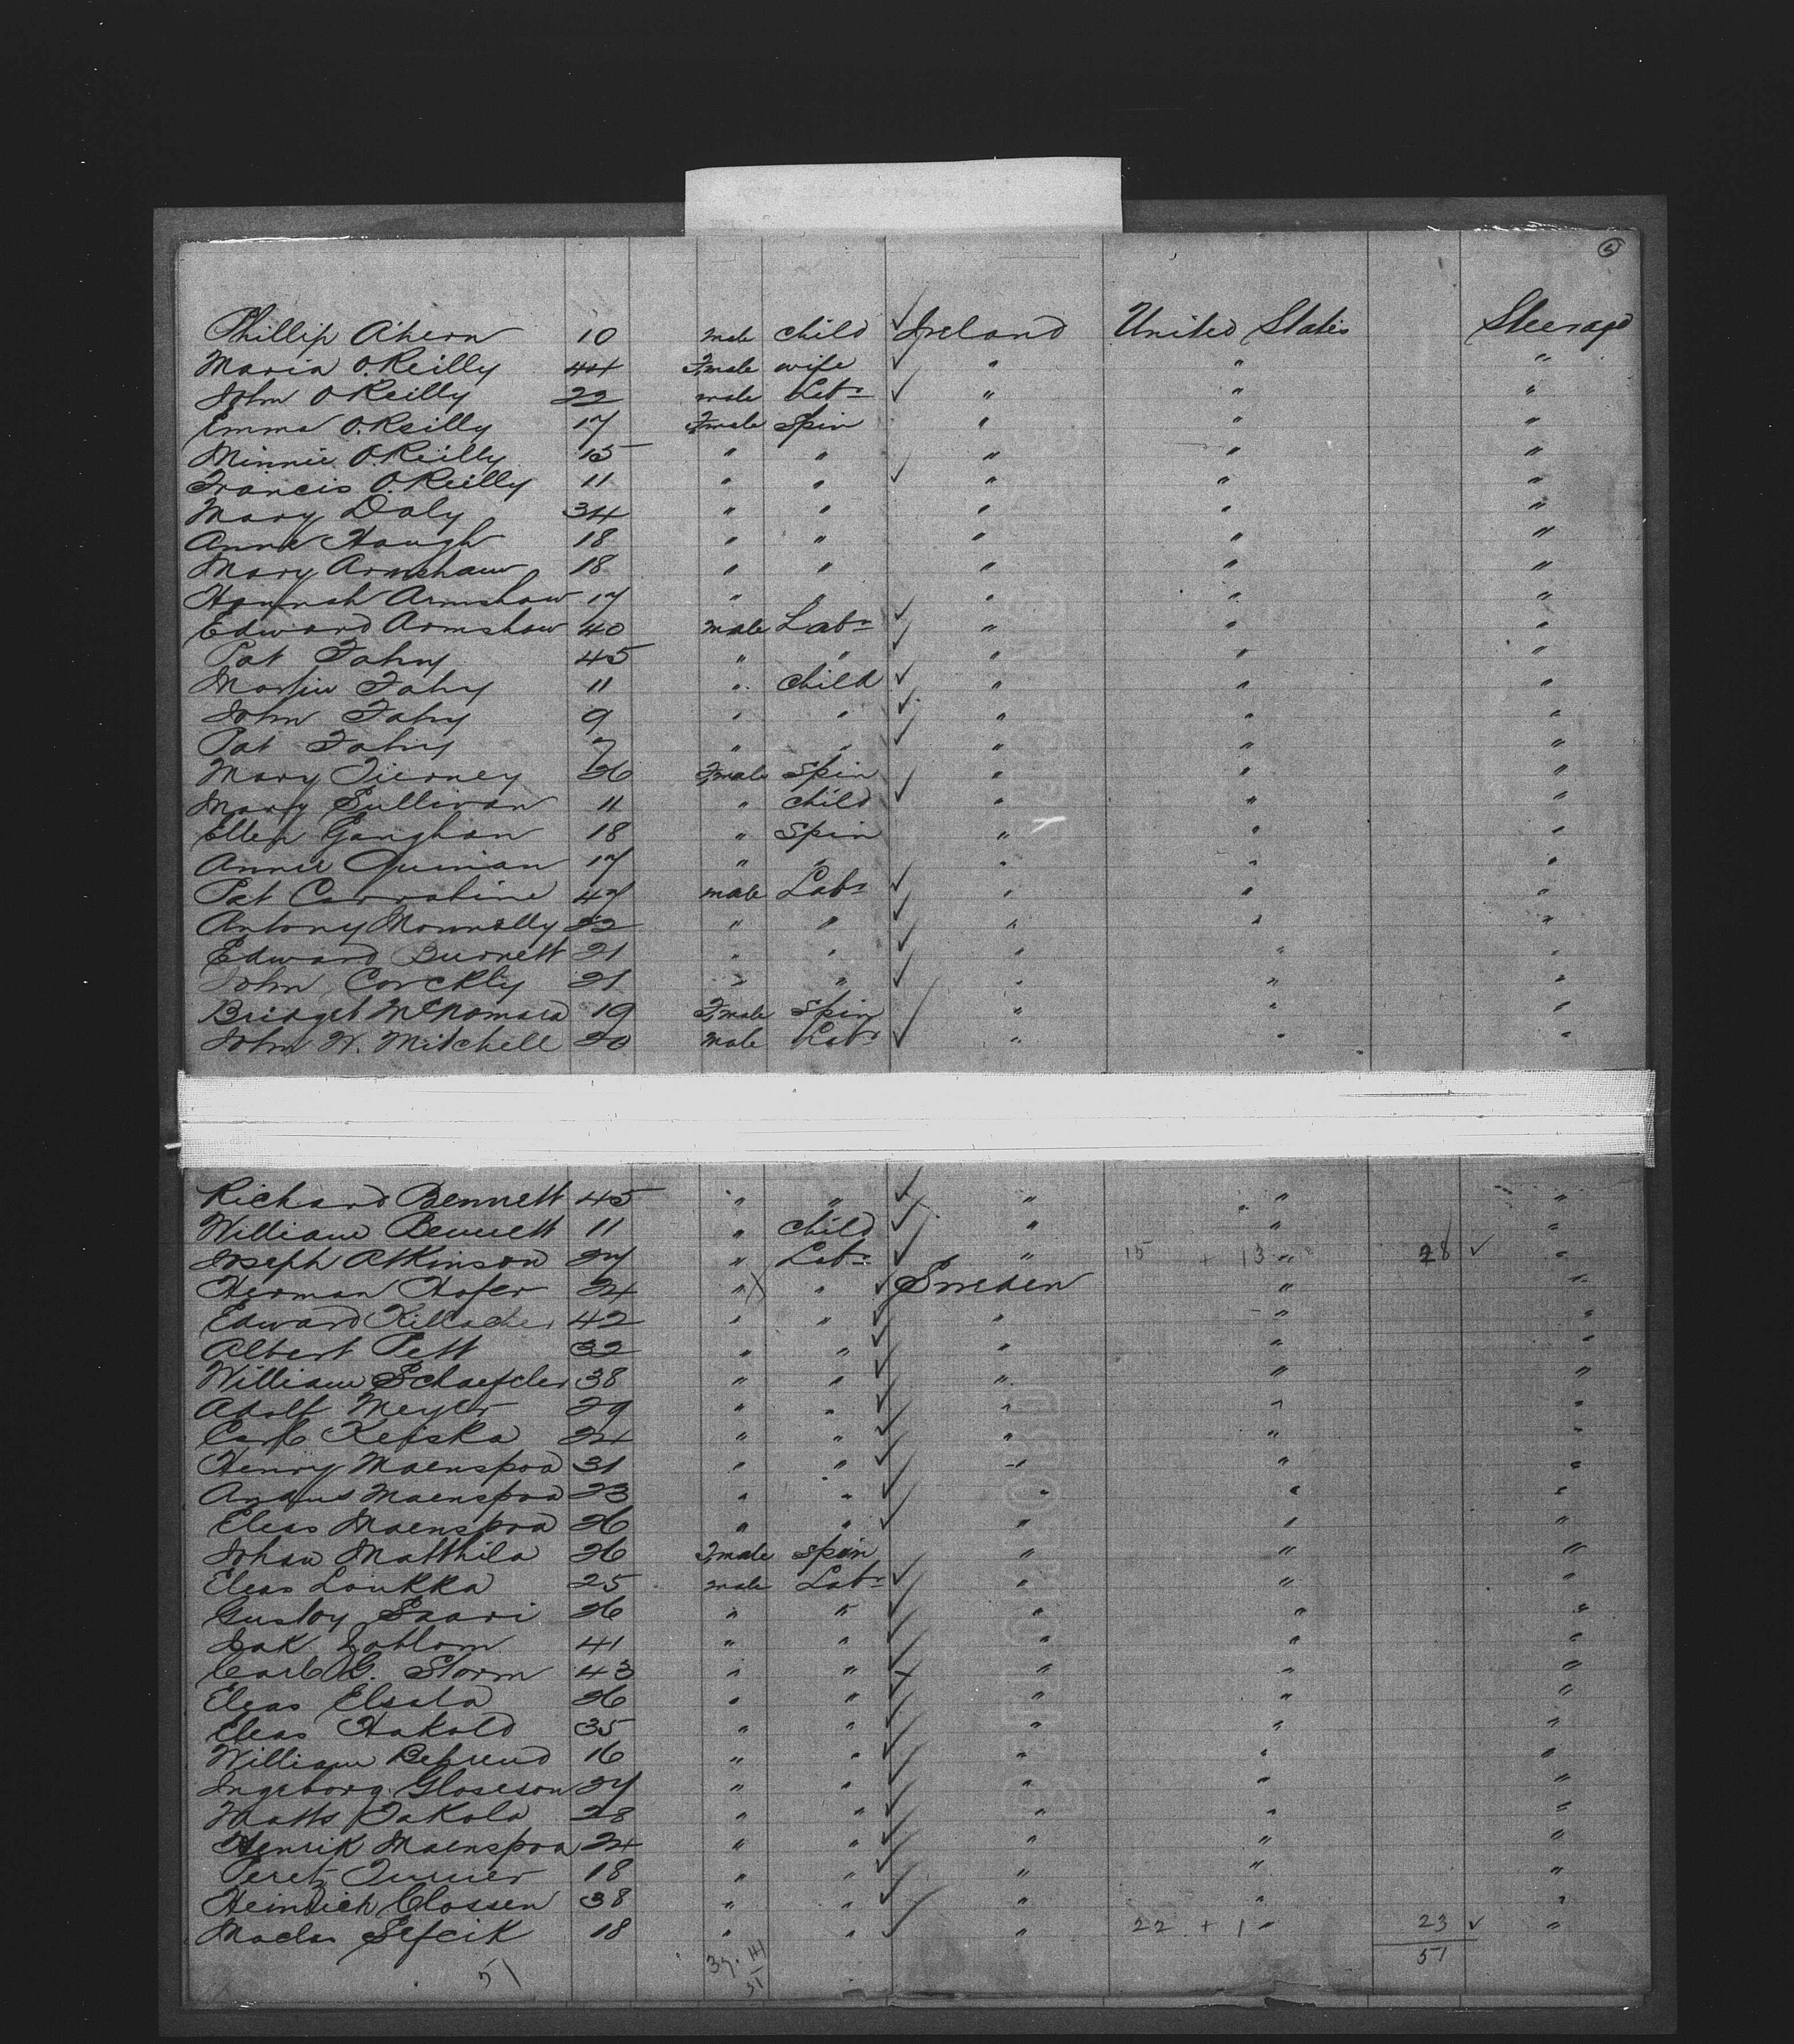 Phillip Ahern 10 male child ✓ Ireland United States Steerage
Maria O.Reilly 44 Female wife ✓ " " "
John O Reilly 22 male Labr ✓ " " "
Emma O.Reilly 17 Female Spin " " "
Minnie O.Reilly 15 " " " " "
Francis O.Reilly 11 " " ✓ " " "
Mary Daly 34 " " " " "
Anne Hough 18 " " " " "
Mary Armshaw 18 " " " " "
Hannah Armshaw 17 " " " " "
Edward Armshaw 40 male Labr ✓ " " "
Pat Fahy 45 " " ✓ " " "
Martin Fahy 11 " child ✓ " " "
John Fahy 9 " " ✓ " " "
Pat Fahy 7 " " ✓ " " "
Mary Tierney 26 Female Spin ✓ " " "
Mary Sullivan 11 " child ✓ " " "
Ellen Gaughan 18 " Spin " " "
Annie Quinian 17 " " " " "
Pat Carrabine 47 male Labr ✓ " " "
Antony Monnelly 22 " " ✓ " " "
Edward Burnett 21 " " ✓ " " "
John Corckly 21 " " ✓ " " "
Bridget McNamara 19 Female Spin " " "
John W. Mitchell 20 male Labr ✓ " " "
Richard Bennett 45 " " ✓ " " "
William Bennett 11 " child ✓ " " "
Joseph Atkinson 27 " Labr ✓ " 15 + 13 " 28 ✓ "
Herman Hofer 24 " " ✓ Sweden " "
Edward 42 " " ✓ " " "
Albert Pett 32 " " ✓ " " "
William Schaefder 38 " " ✓ " " "
Adolf Meyer 29 " " ✓ " " "
Carl Kefska 24 " " ✓ " " "
Henry Maenspaa 31 " " ✓ " " "
Andrus Maenspaa 23 " " ✓ " " "
Elias Maenspaa 26 " " ✓ " " "
Johan Matthila 26 Female spin " " "
Elias Loukka 25 male Labr ✓ " " "
Gustav Saari 26 " " ✓ " " "
Isak 41 " " ✓ " " "
Carl G. Storm 43 " " ✓ " " "
Elias Elsala 26 " " ✓ " " "
Elias Hakold 35 " " ✓ " " "
William Behrend 16 " " ✓ " " "
Ingeborg Gloseson 27 " " ✓ " " "
Matts Takola 28 " " ✓ " " "
Henrik Maenspaa 24 " " ✓ " " "
Peret 18 " " ✓ " " "
Heindich Clossen 38 " " ✓ " " "
Sefcik 18 " " ✓ " 22 + 1 " 23 ✓ "
51 37. 14 51
51